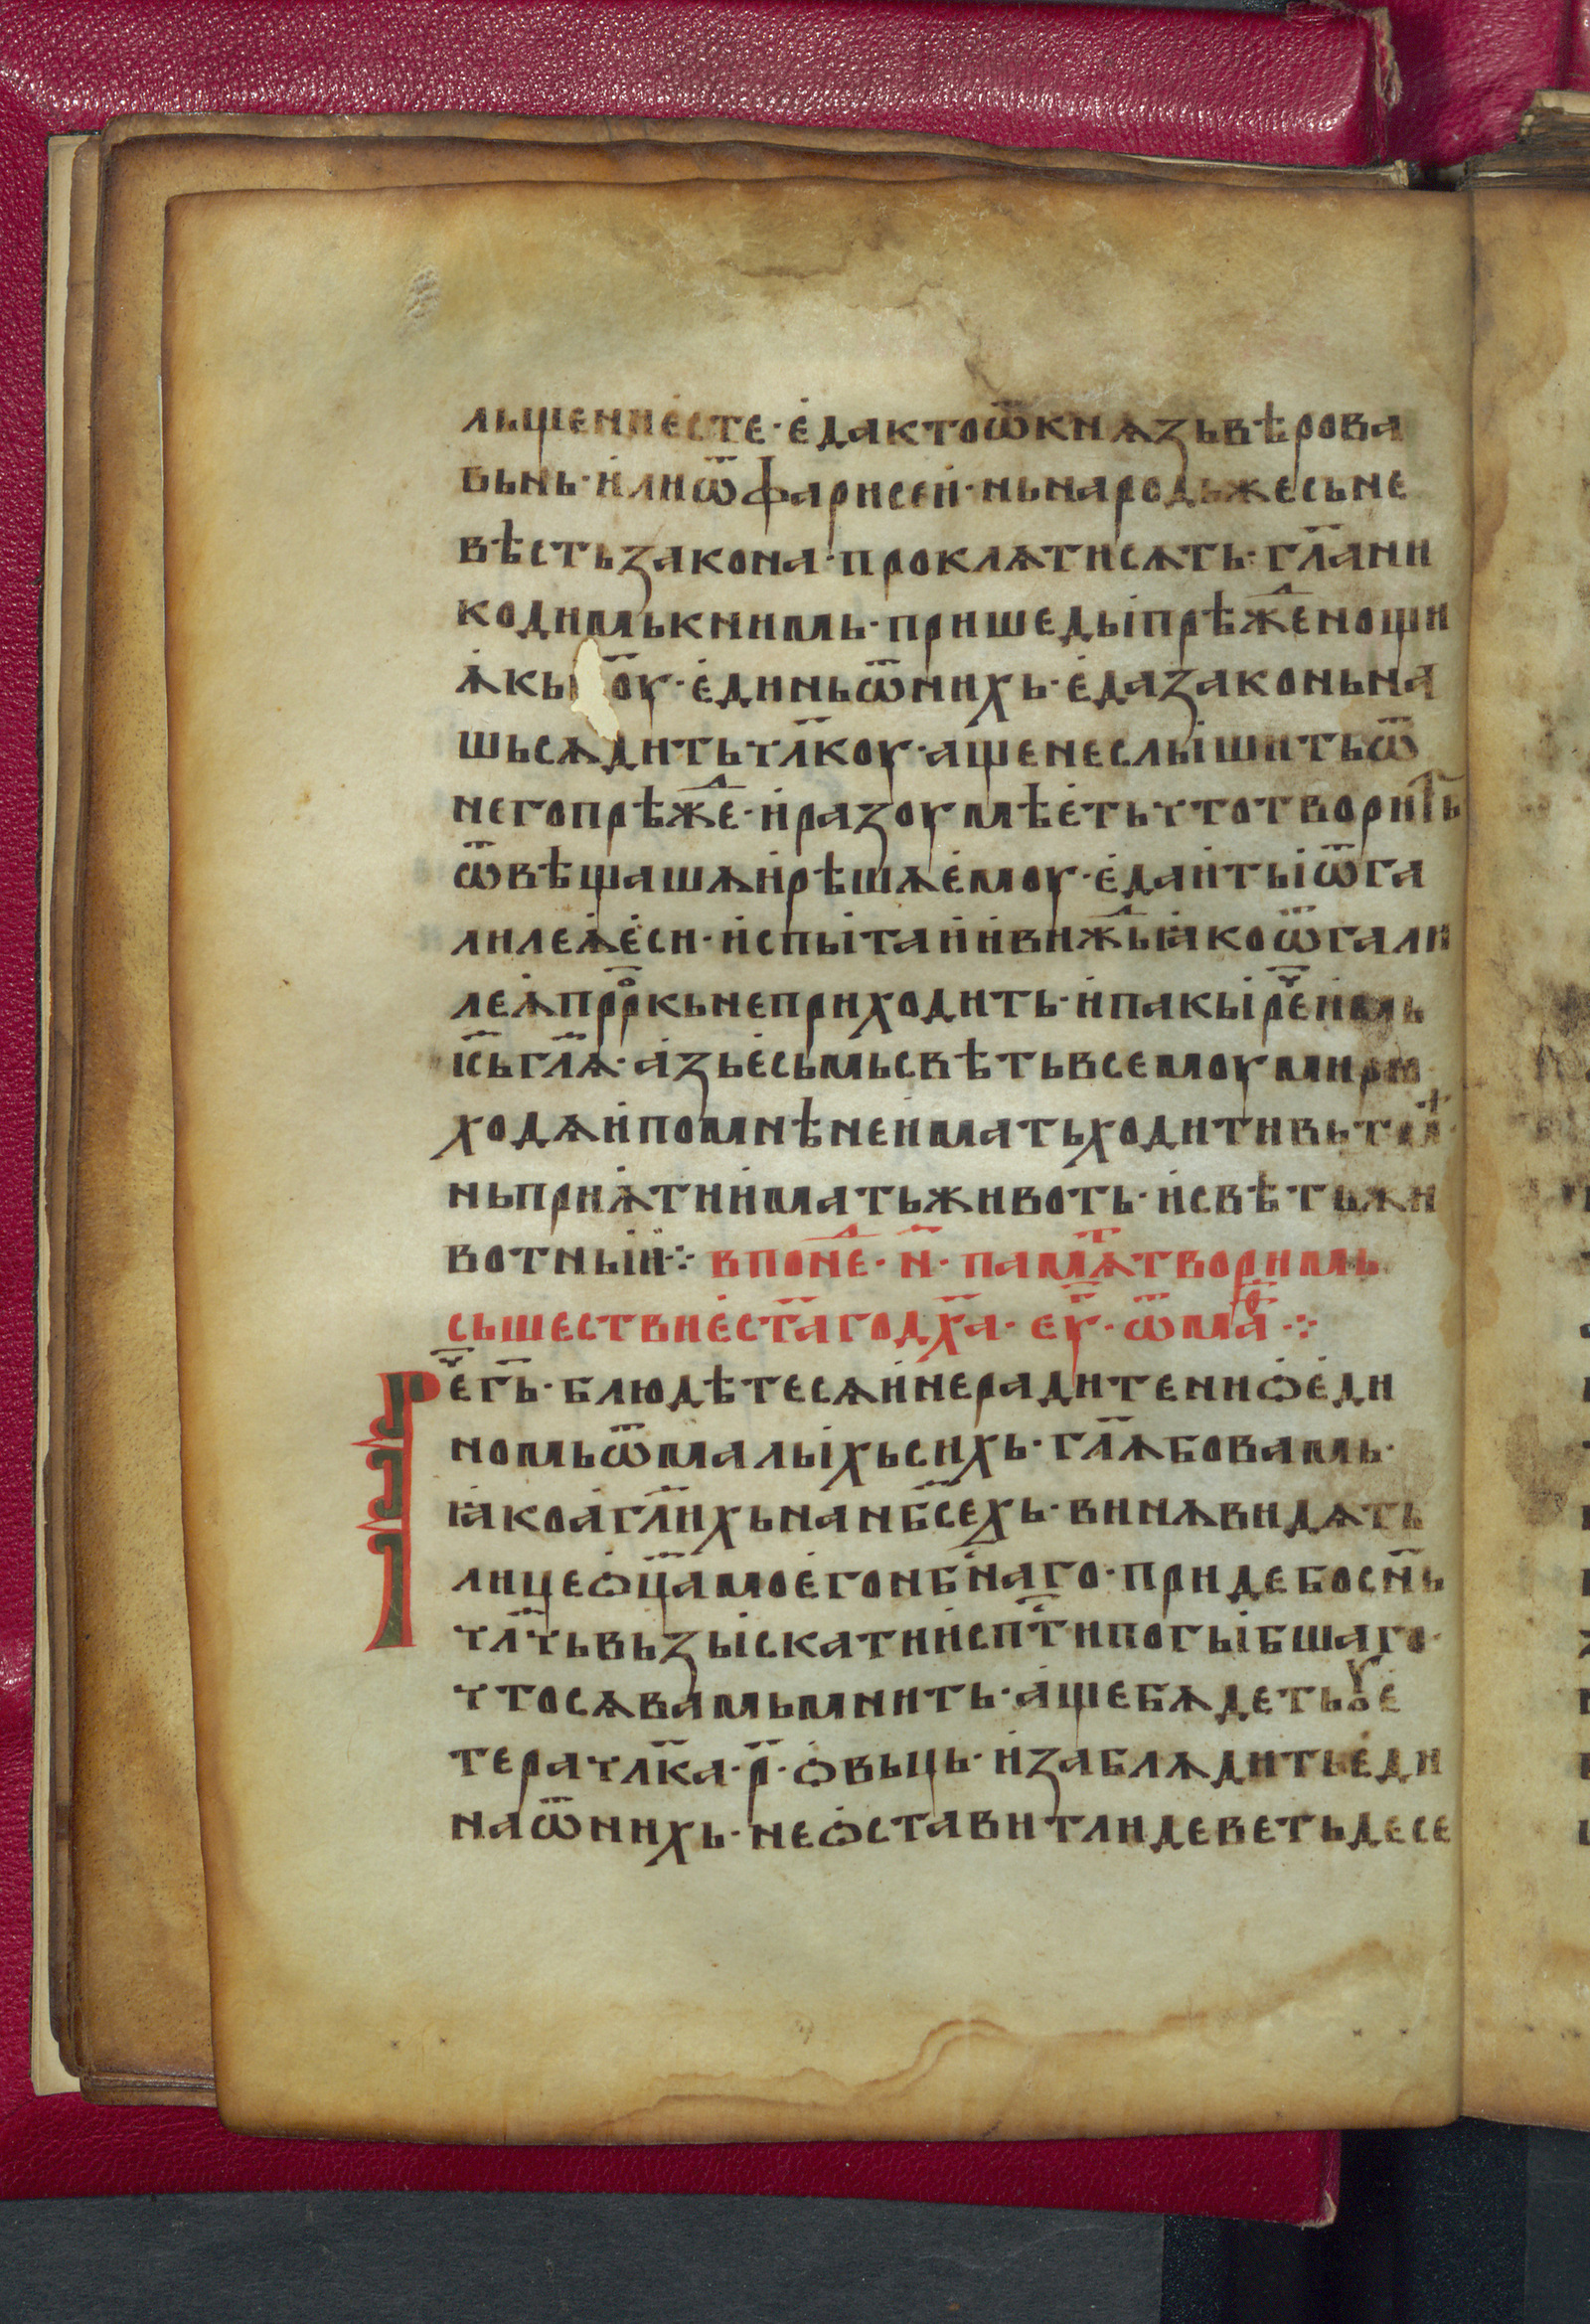 льщении́есте· е҆дактоѿкнѧзьвѣрова
вьнь· и҆лиѿфарисеи· ньнародьжесьне
вѣстьзакона· проклѧтисѧть· гл҃ани
кодимькнимь· пришедыпрѣжⷣеноши
ѧ҆кы оу· е҆диньѿнихь· е҆дазаконьна
шьсѧдитьчл҃коу· ащенеслышитьѿ
негопрѣжⷣе· и҆разоумѣе҆тьчтотворить
ѿвѣщашѧи҆рѣшѧе҆моу· е҆даи҆тыѿга
лилеѧ҆е҆си· и҆спытаи҆и҆виждьꙗ҆коѿгали
леѧ҆пррⷪ҇кьнеприходить· и҆пакыреⷱ҇и҆мь
іс҃ьгл҃ѧ· а҆зье҆сьмьсвѣтьвсемоумироу
ходѧи҆помнѣнеи҆матьходитивьтⸯмⷨ
ньприѧ҆тии҆матьживоть· и҆свѣтьжи
вотныи҆⁘ впонⷣе· н҃· памⷮѧтворимь
сьшествие҆ст҃агодх҃а· еуⷢ҇· ѿмаⷴ҇⁘
Реⷱ҇г҃ь· блюдѣтесѧи҆нерадитениѻе҆ди
номьѿмалыхьсихь· гл҃ѧбовамь·
ꙗ҆коа҆гл҃ихьнанб҃сехь· винѧвидѧть
лицеѻц҃амое҆гонбⷭ҇наго· придебосн҃ь
чл҃чьвьзыскатии҆сптⷭ҇ипогыбшаго·
чтосѧвамьмнить· а҆щебѧдетьꙋе҆
терачл҃ка· р҃· ѻвьць· и҆заблѧдитье҆ди
наѿнихь· неѻставитлидеветьдесе